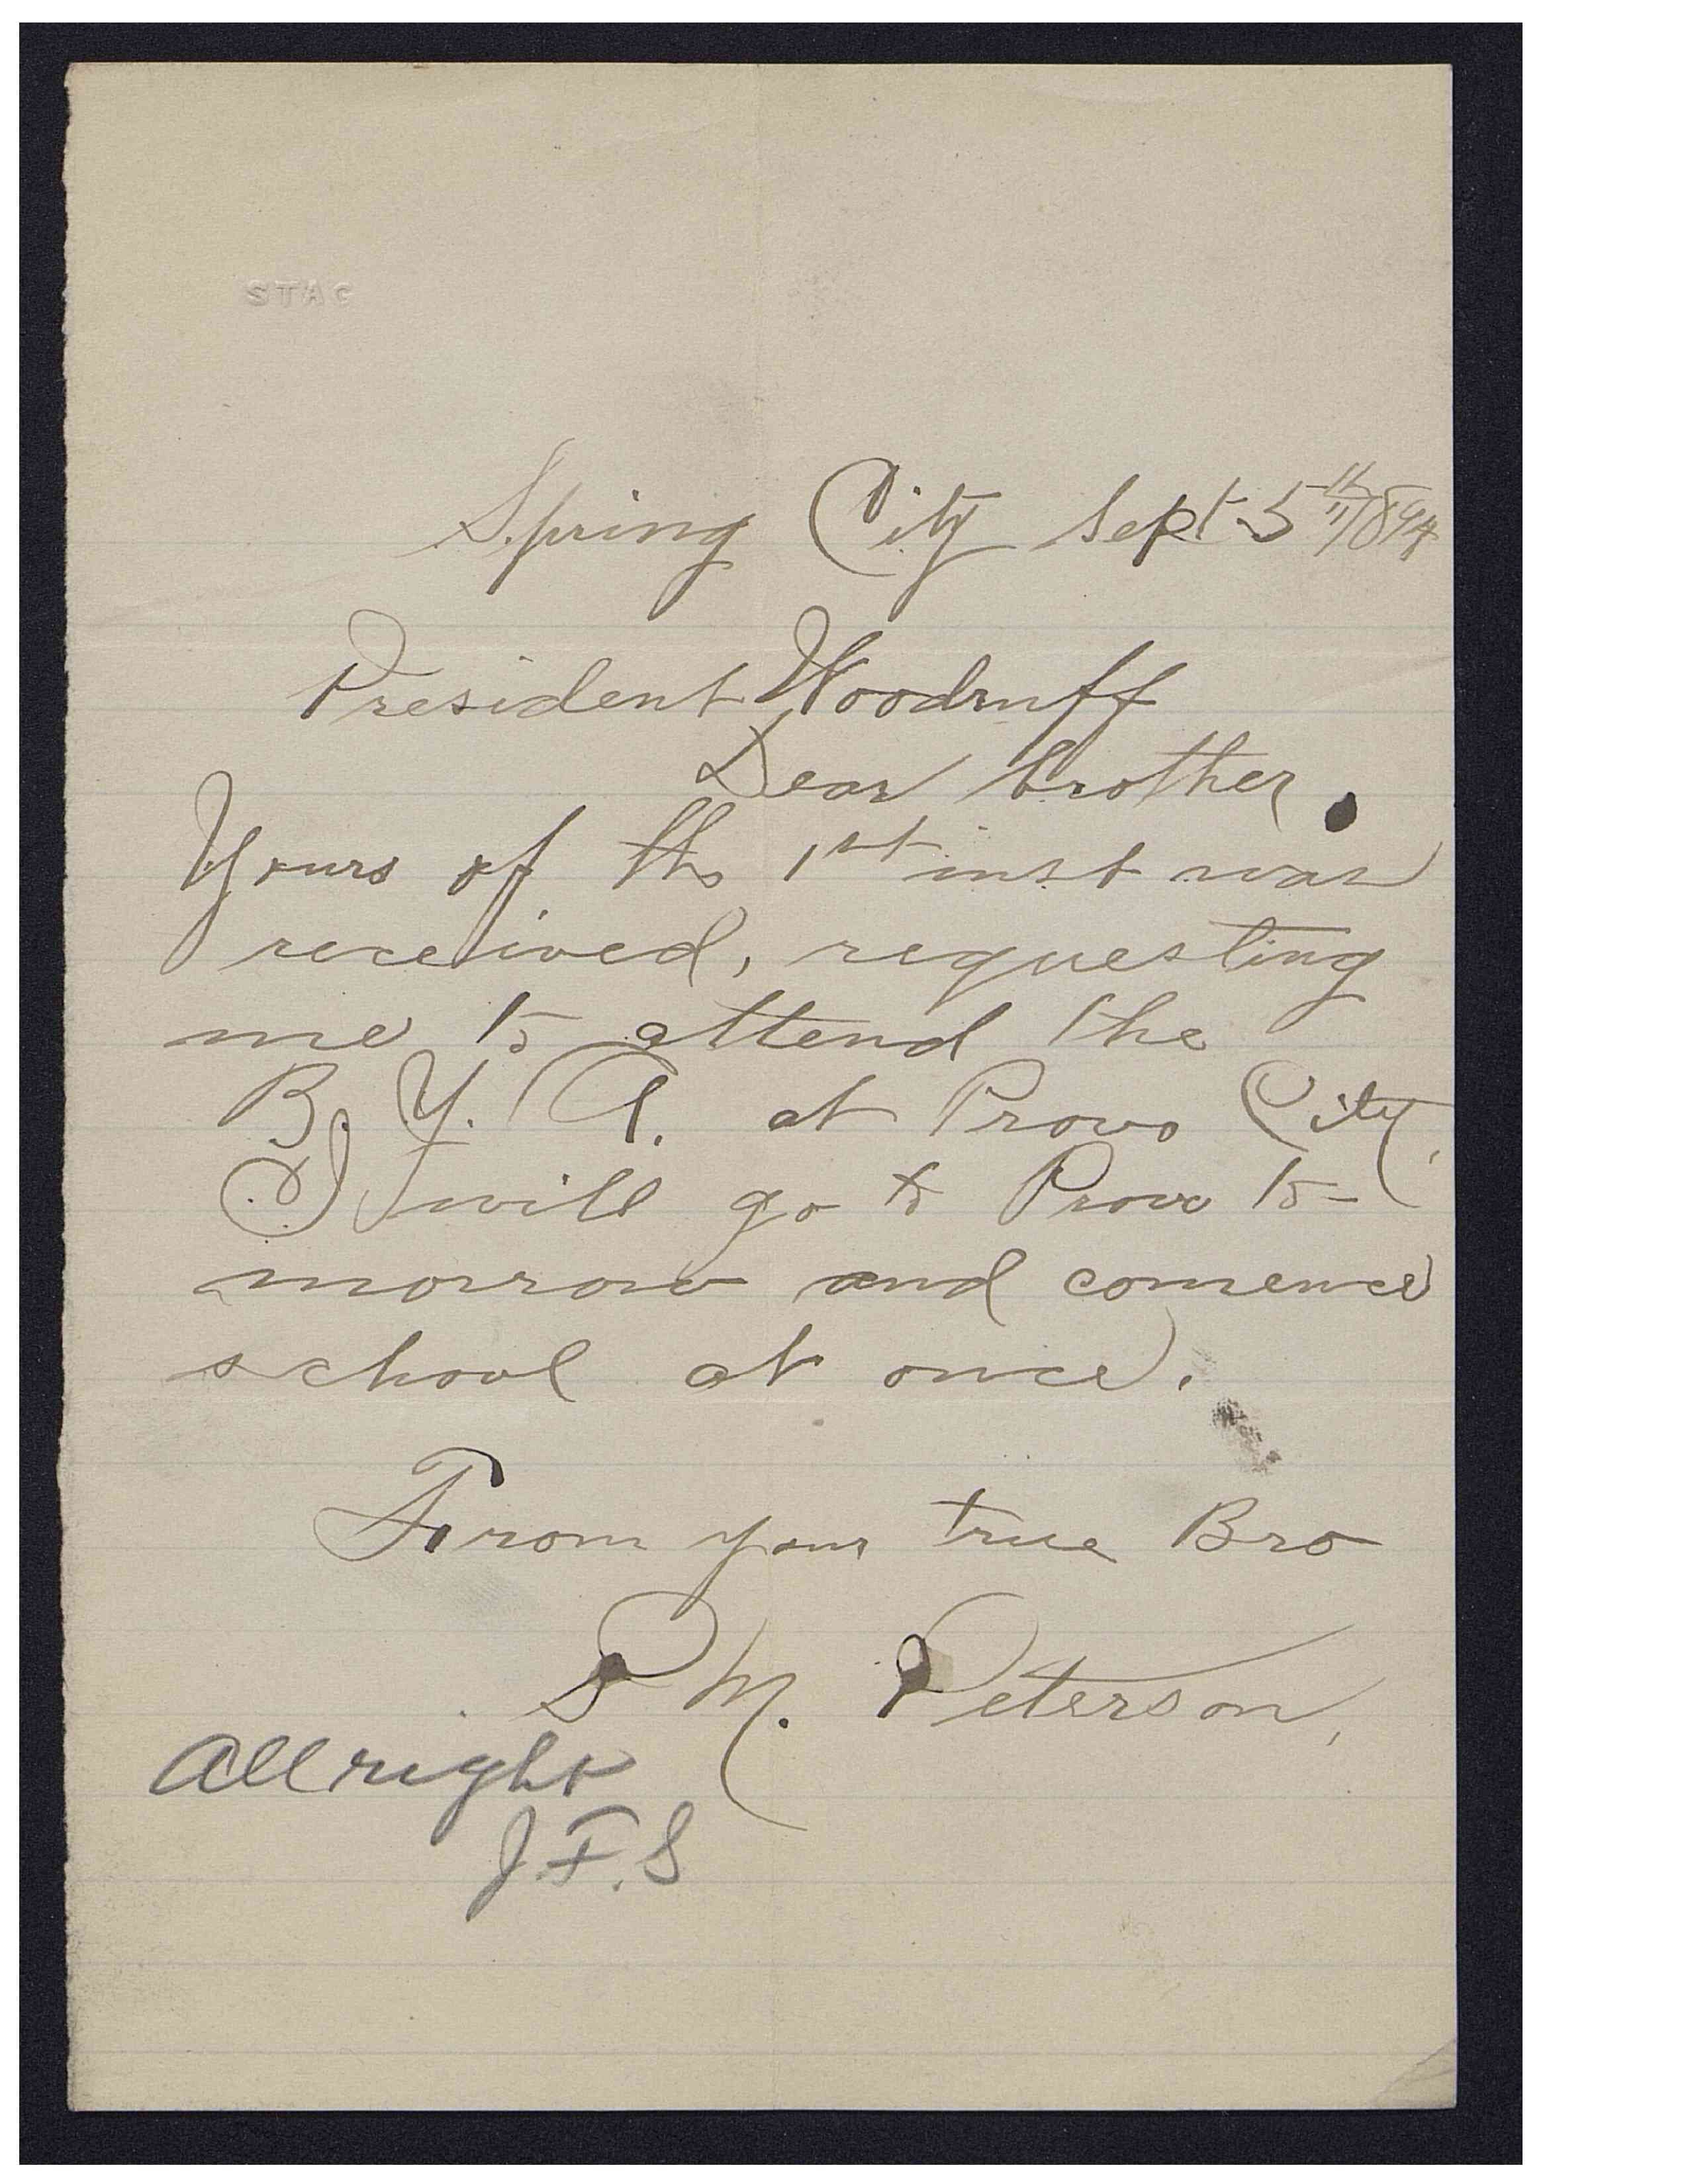 STAC
Spring City Sept 5th 1894
President Woodruff
Dear brother.
Yours of the 1st inst was
received, requesting
me to attend the
B. Y. A. at Provo City.
I will go to Provo to-
morrow and comence
school at once.
From your true Bro
P M. Peterson,
All right
J. F. S